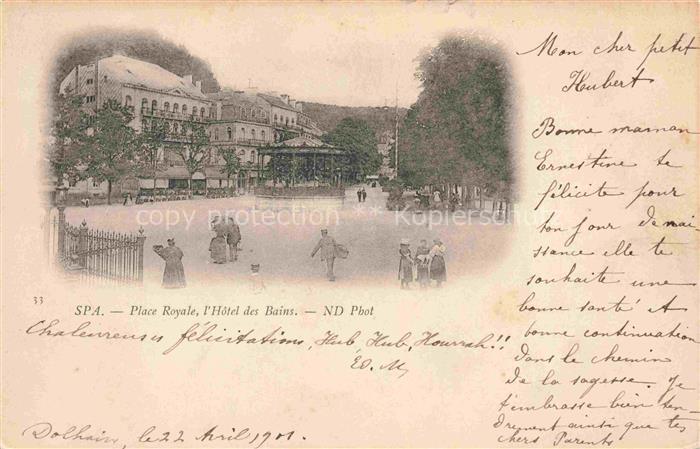 Mon cher petit
Hubert
Bonne maman
Ernestine te
félicite pour
ton jour de nai
ssance elle te
souhaite une
bonne santé et
bonne continuation
dans le chemin
de la sagesse. Je
t'embrasse bien ten
drement ainsi que tes
chers Parents
copy protection © Kopierschutz
33
SPA. — Place Royale, l'Hôtel des Bains. — ND Phot
Chaleureuses félicitations, Hub, Hub, Hourrah!!
Ed. M.
Dolhain, le 22 Avril 1901.